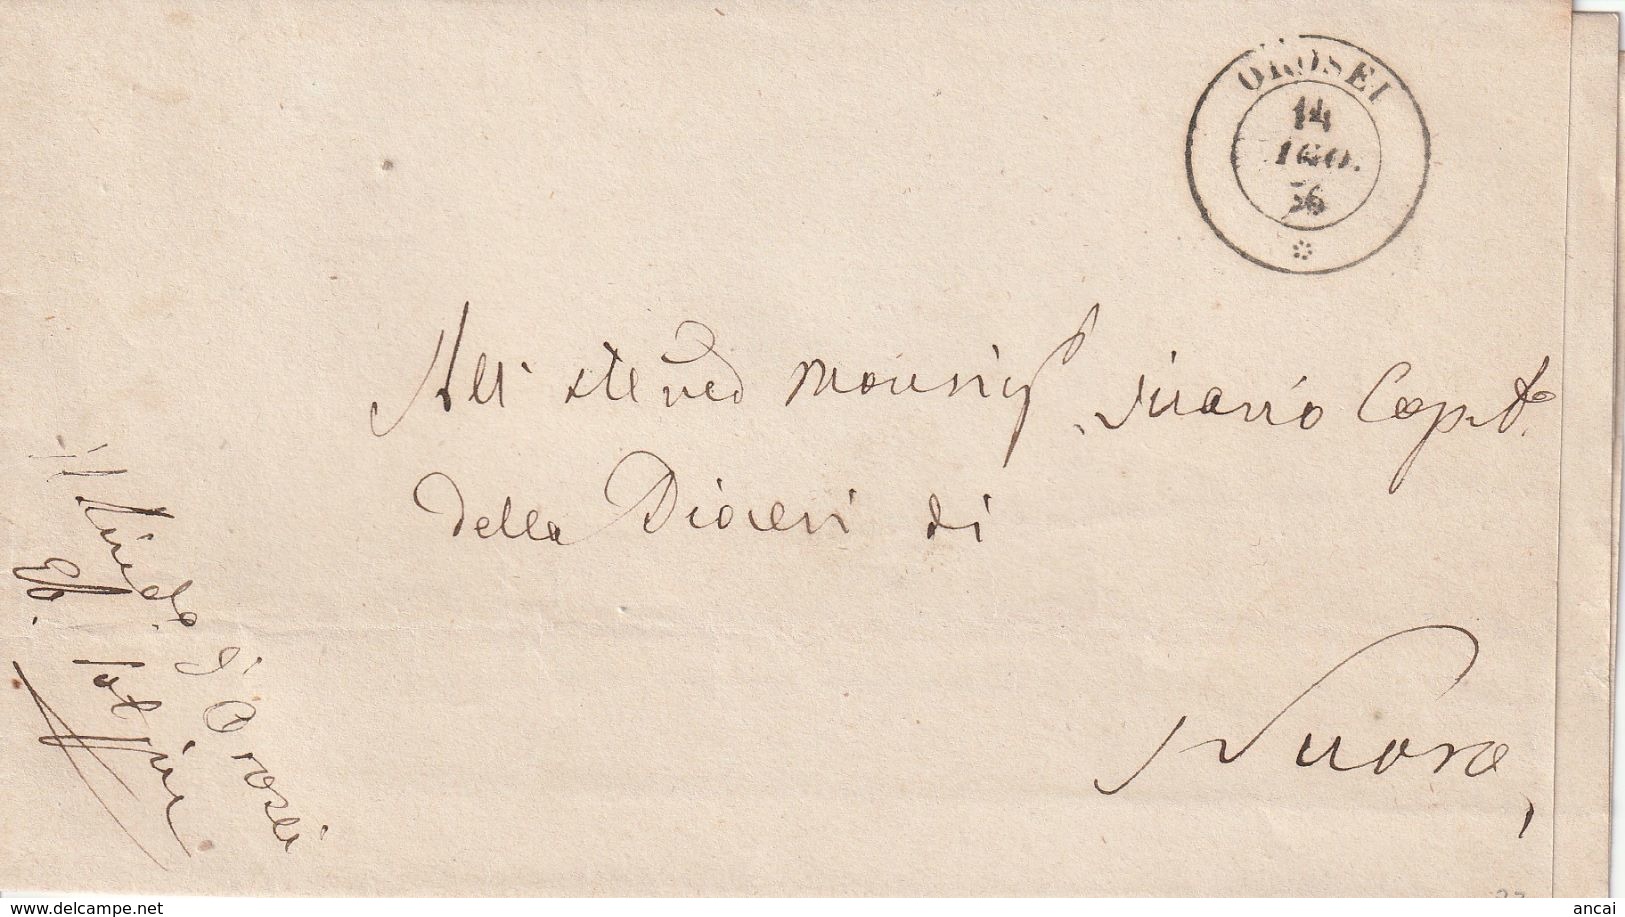 OROSEI
14
AGO.
56
All' Ill.e e Rev.d Monsig.r Vicario Capit.e
della Diocesi di
Nuoro
Il Sindaco d'Orosei
www.delcampe.net
ancai